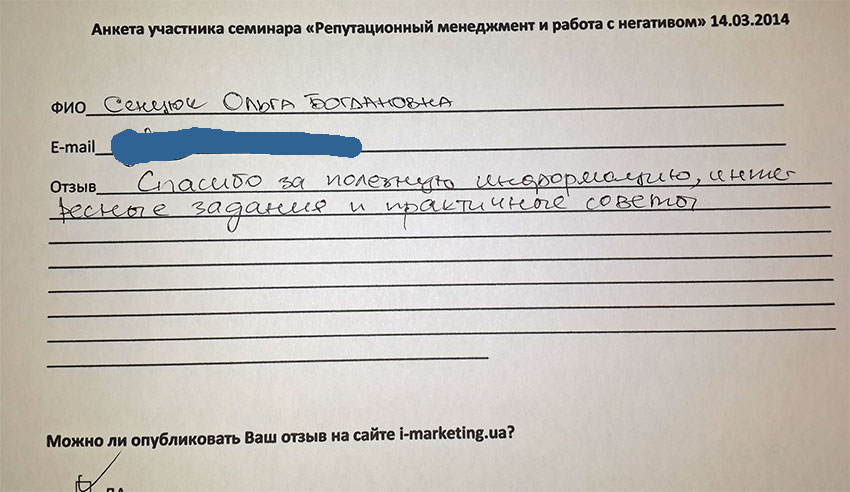 Анкета участника семинара «Репутационный менеджмент и работа с негативом» 14.03.2014
ФИО Сенцюк Ольга Богдановна
E-mail
Отзыв Спасибо за полезную информацию, инте
ресные задания и практичные советы
Можно ли опубликовать Ваш отзыв на сайте i-marketing.ua?
ДА